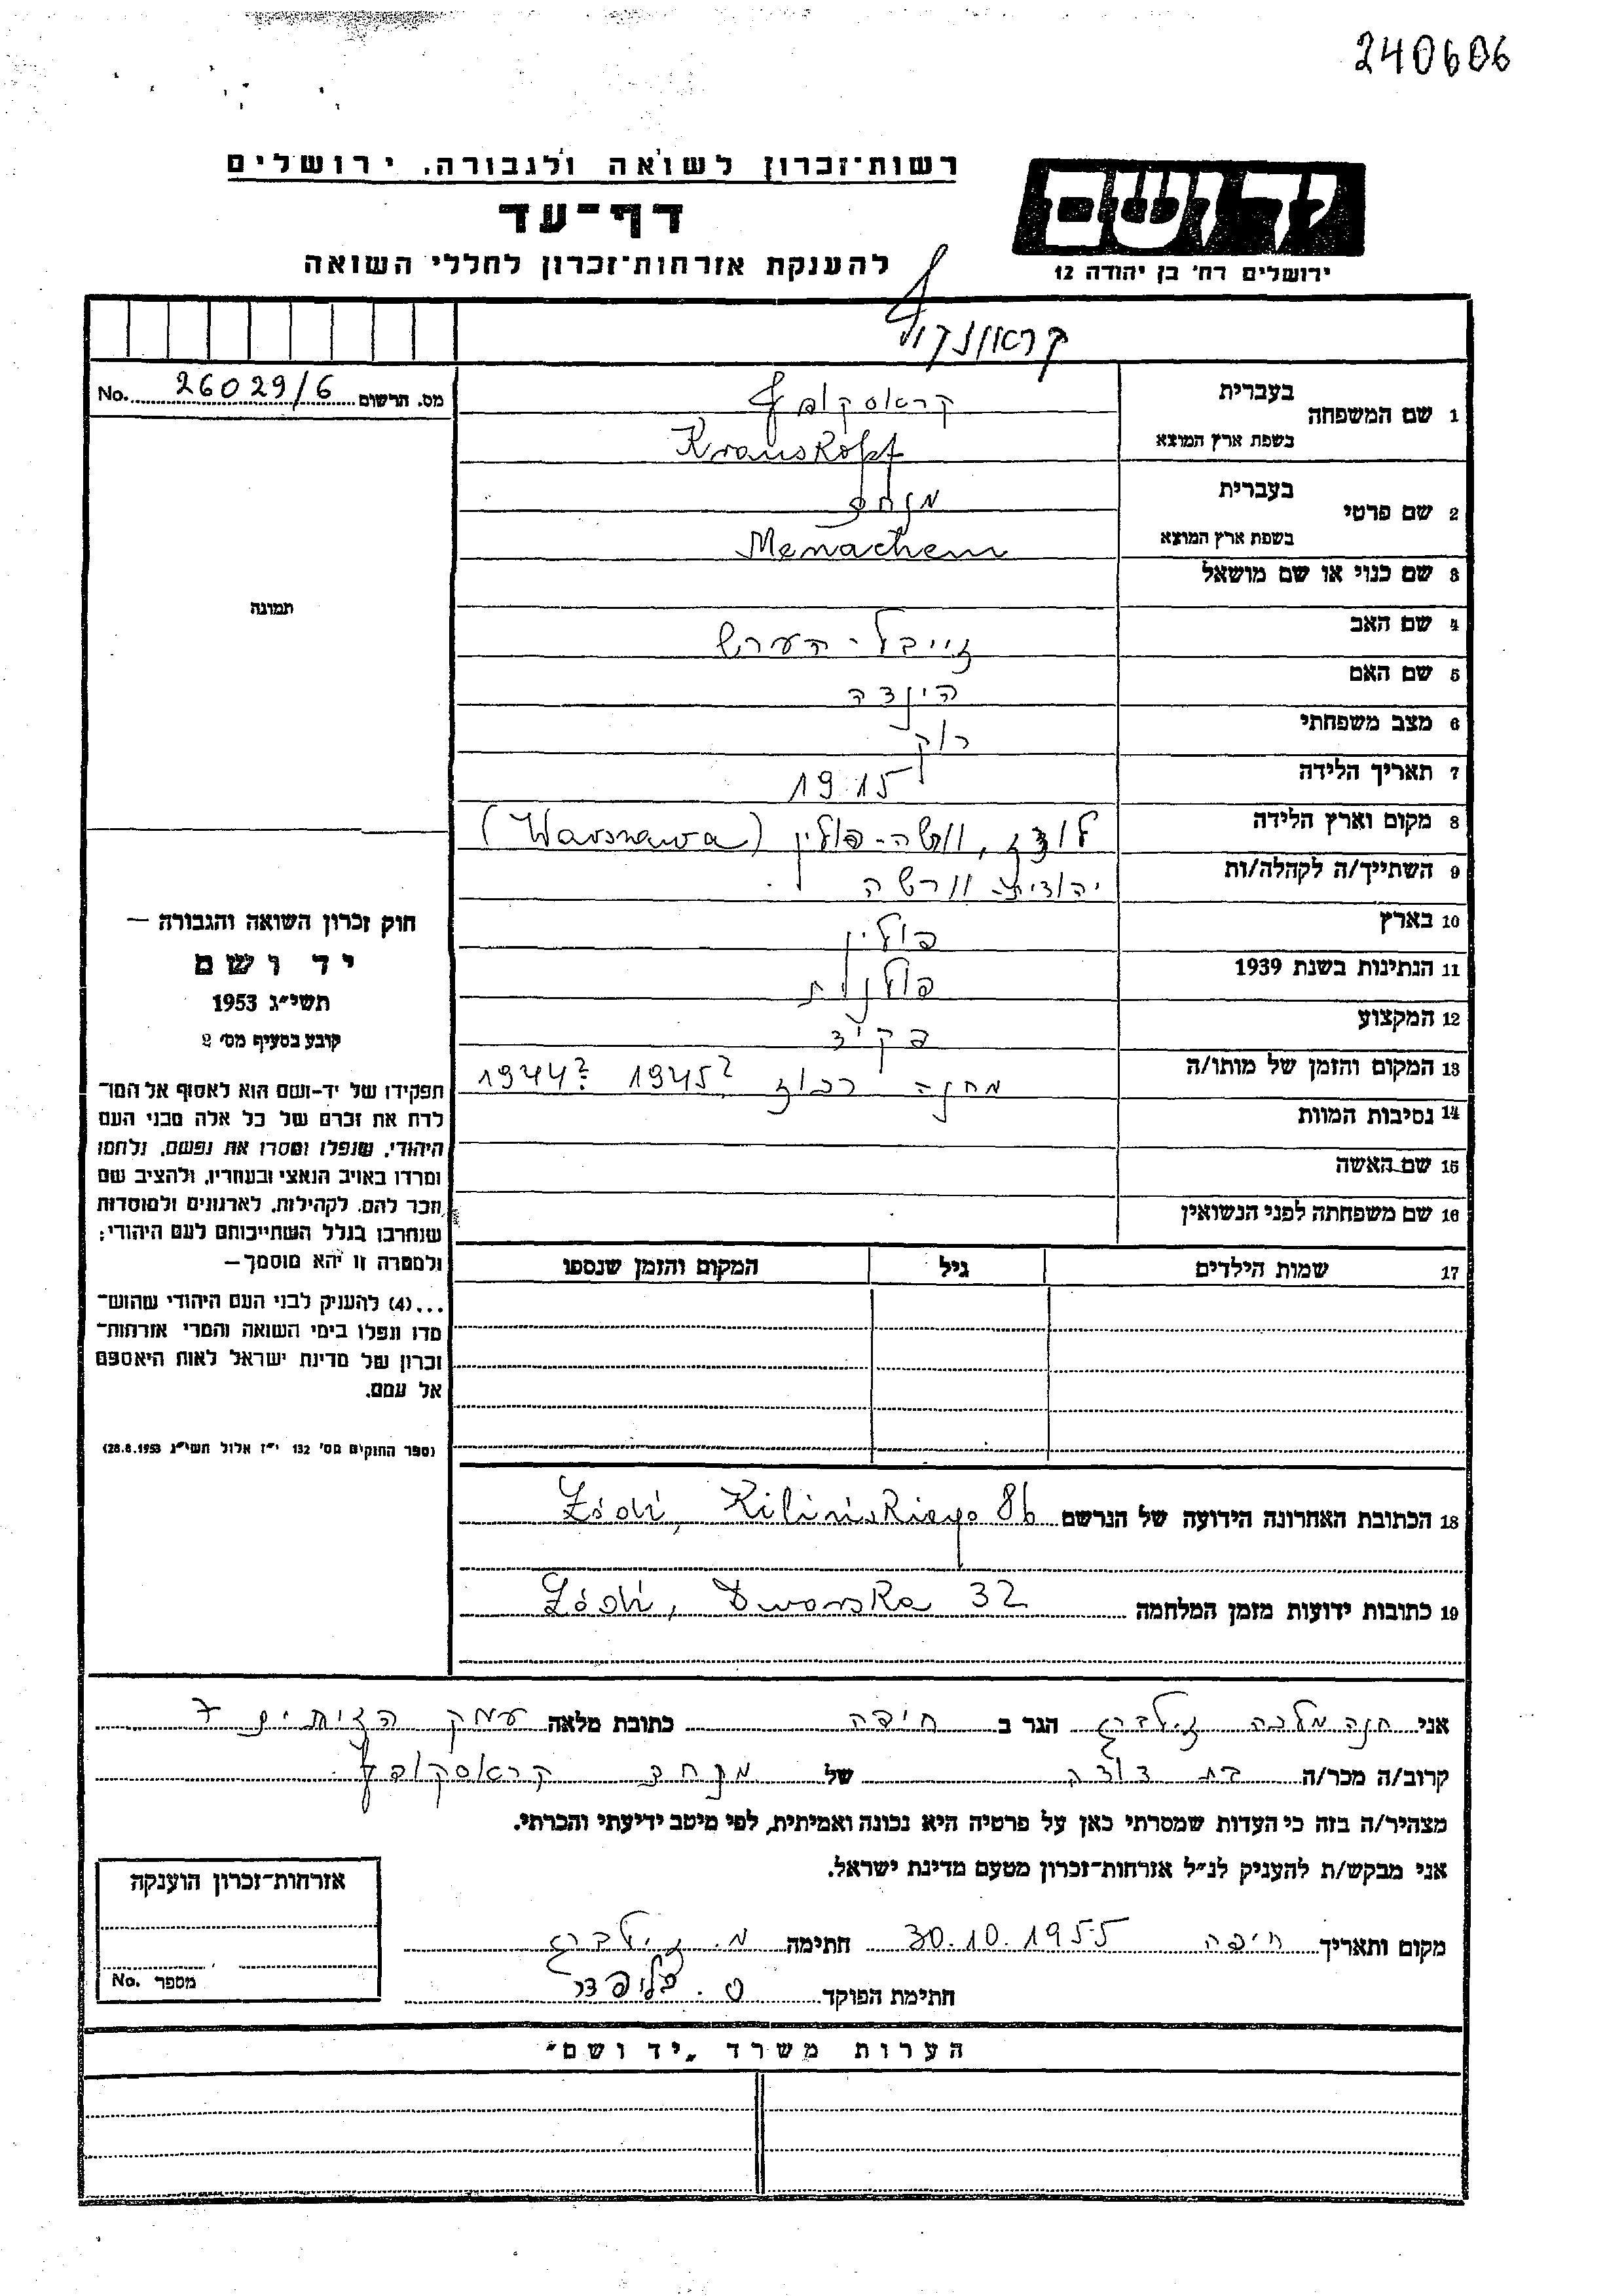 240606
רשות־זכרון לשואה ולגבורה, ירושלים
דף־עד
להענקת אזרחות־זכרון לחללי השואה
יד ושם
ירושלים רח' בן יהודה 12
No. 26029/6 מס. הרשום
תמונה
1 שם המשפחה
בעברית קראסקאפף
בשפת ארץ המוצא Krauskopf
2 שם פרטי
בעברית מנחם
בשפת ארץ המוצא Menachem
3 שם כנוי או שם מושאל
4 שם האב זייבל-הערש
5 שם האם הינדה
6 מצב משפחתי רוק
7 תאריך הלידה 1915
8 מקום וארץ הלידה לודז, ורשה-פולין (Warszawa)
9 השתייך/ה לקהלה/ות יהודית-וורשה
10 בארץ פולין
11 הנתינות בשנת 1939 פולנית
12 המקצוע פקיד
13 המקום והזמן של מותו/ה מחנה רכוז 1945? 1944?
14 נסיבות המוות
15 שם האשה
16 שם משפחתה לפני הנשואין
17 שמות הילדים גיל המקום והזמן שנספו
חוק זכרון השואה והגבורה —
יד ושם
תשי"ג 1953
קובע בסעיף מס' 2
תפקידו של יד-ושם הוא לאסוף אל המו־
לדת את זכרם של כל אלה מבני העם
היהודי, שנפלו ומסרו את נפשם, נלחמו
ומרדו באויב הנאצי ובעוזריו, ולהציב שם
וזכר להם, לקהילות, לארגונים ולמוסדות
שנחרבו בגלל השתייכותם לעם היהודי;
ולמטרה זו יהא מוסמך —
...(4) להעניק לבני העם היהודי שהוש־
מדו ונפלו בימי השואה והמרי אזרחות־
זכרון של מדינת ישראל לאות היאספם
אל עמם.
(ספר החוקים מס' 132 י"ז אלול תשי"ג 28.8.1953)
18 הכתובת האחרונה הידועה של הנרשם Łódź, Kilińskiego 86
19 כתובות ידועות מזמן המלחמה Łódź, Dworska 32
אני חנה מלכה זילברג הגר ב חיפה כתובת מלאה עמק הזיתים 7
קרוב/ה מכר/ה בת דודה של מנחם קראסקאפף
מצהיר/ה בזה כי העדות שמסרתי כאן על פרטיה היא נכונה ואמיתית, לפי מיטב ידיעתי והכרתי.
אני מבקש/ת להעניק לנ"ל אזרחות־זכרון מטעם מדינת ישראל.
מקום ותאריך חיפה 30.10.1955 חתימה מ. זילברג
חתימת הפוקד
אזרחות־זכרון הוענקה
מספר No.
הערות משרד „יד ושם"